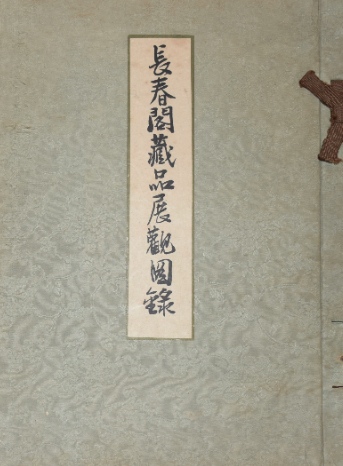 長春閣藏品展觀圖錄